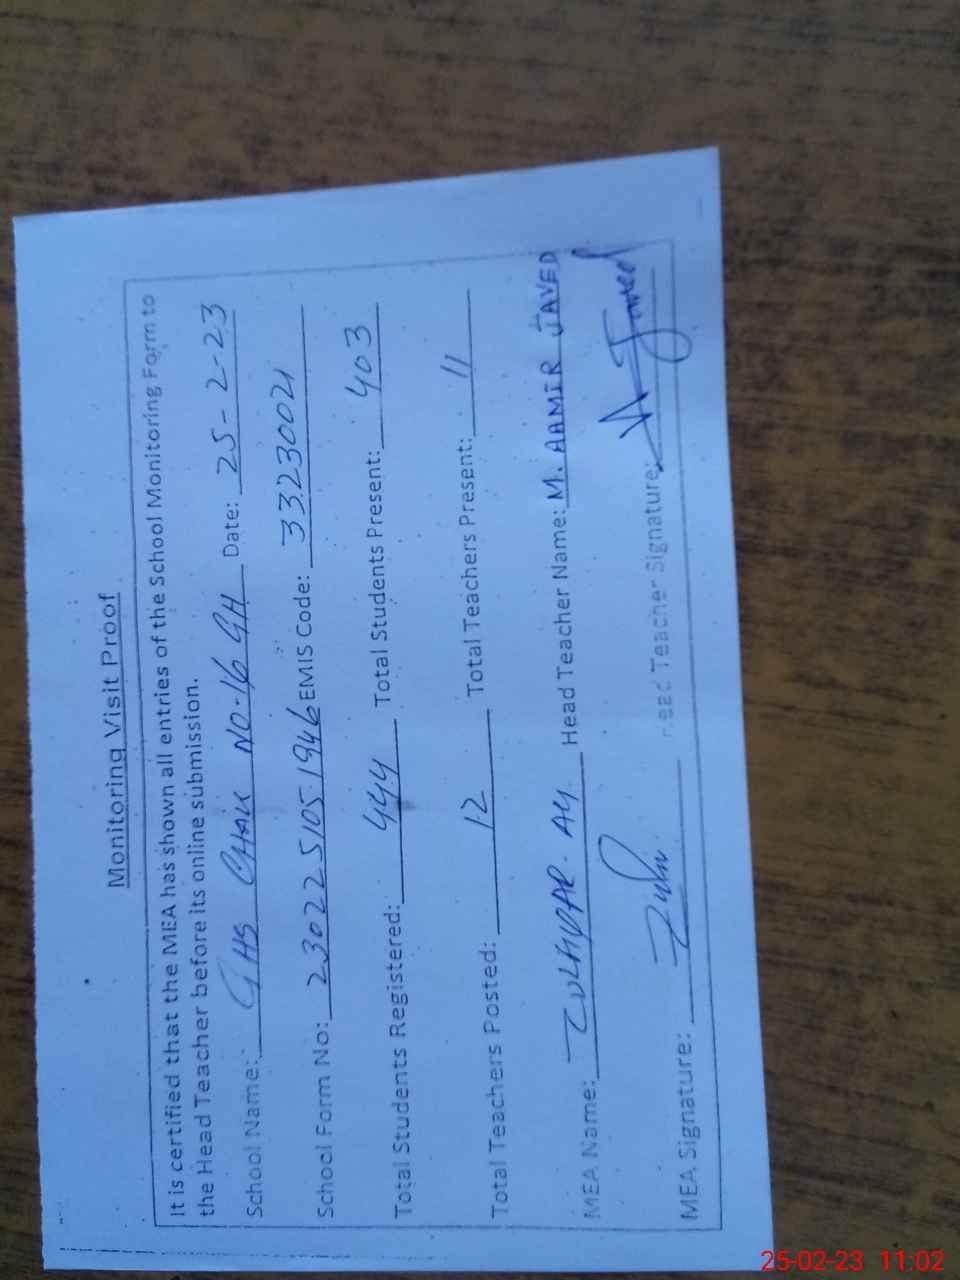 Monitoring Visit Proof
It is certified that the MEA has shown all entries of the School Monitoring Form to
the Head Teacher before its online submission.
School Name: GHS CHAK NO-16 GH Date: 25-2-23
School Form No: 2302251051946 EMIS Code: 33230021
Total Students Registered: 444 Total Students Present: 403
Total Teachers Posted: 12 Total Teachers Present: 11
MEA Name: Head Teacher Name: M. AAMIR JAVED
MEA Signature: Head Teacher Signature: A Javed
25-02-23 11:02